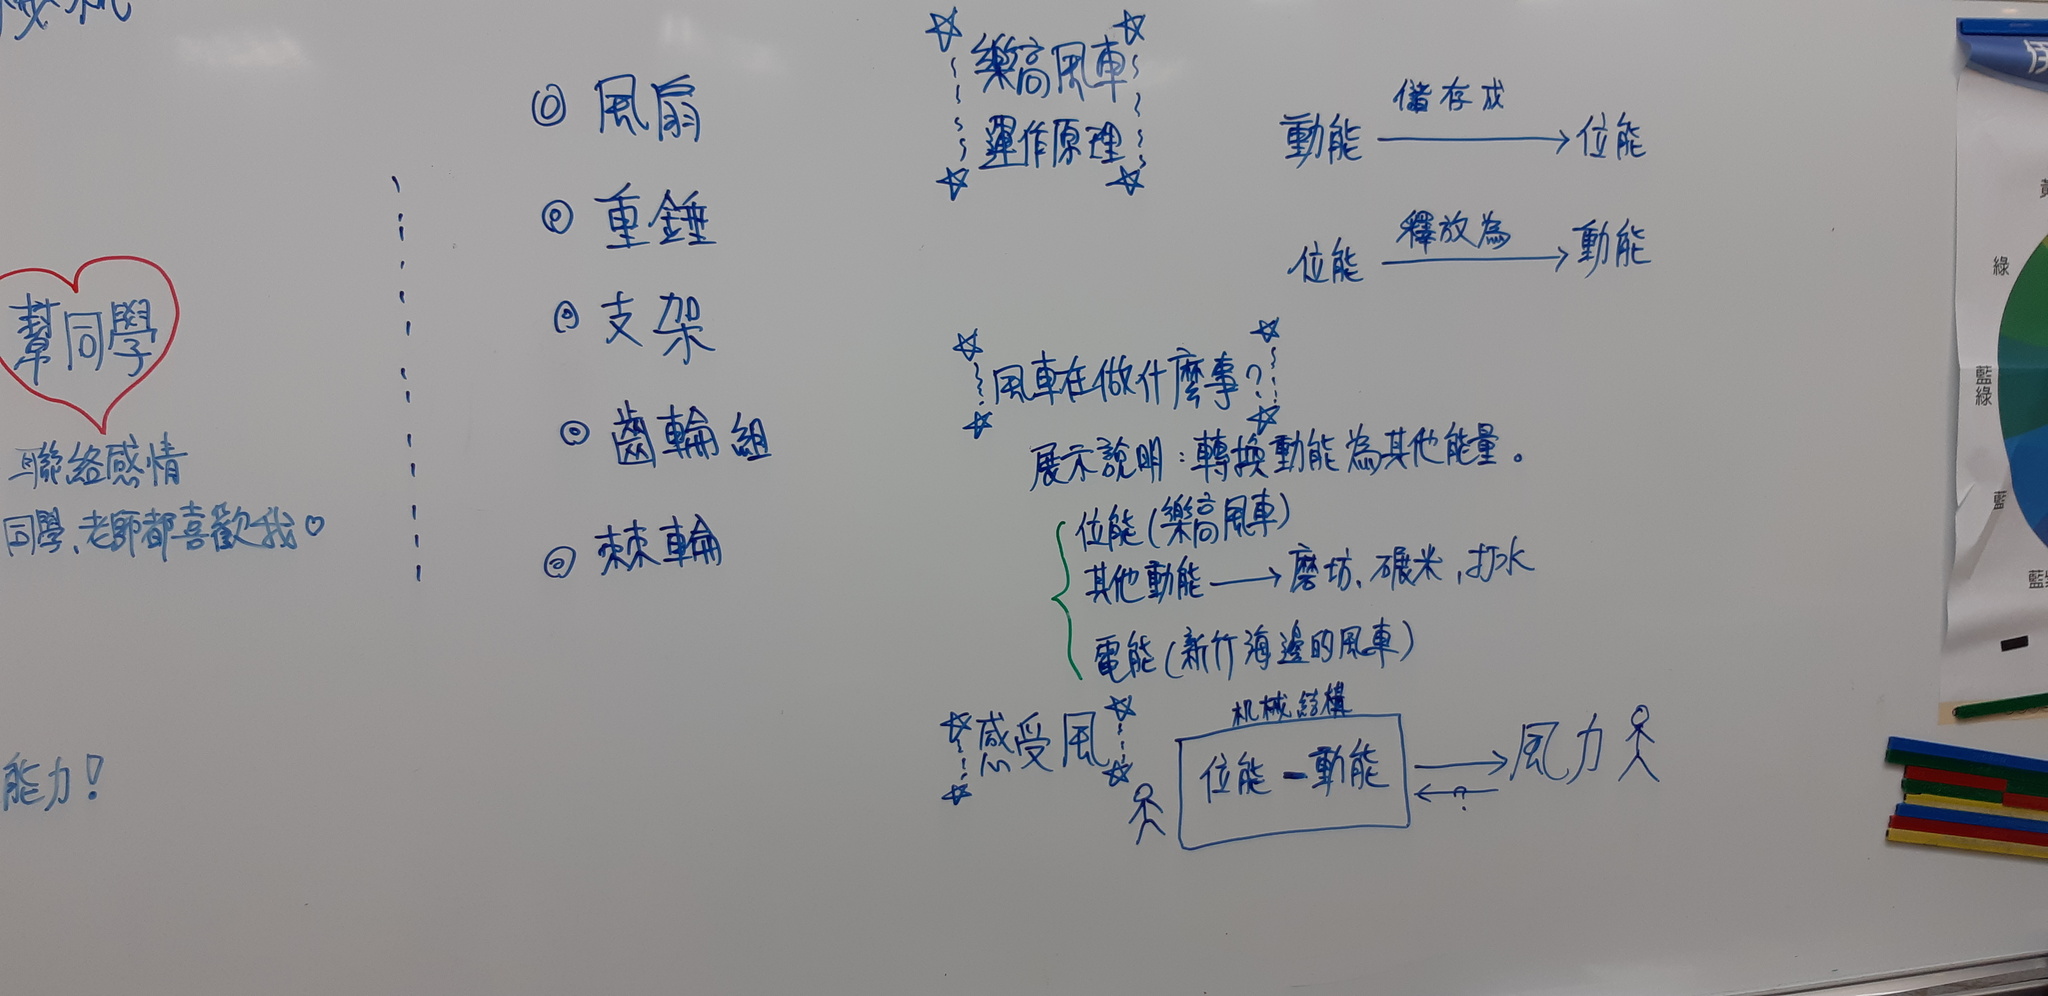 幫同學
聯絡感情
同學、老師都喜歡我♡
能力!
◎ 風扇
◎ 重錘
◎ 支架
◎ 齒輪組
◎ 棘輪
樂高風車
運作原理
儲存成
動能 → 位能
釋放為
位能 → 動能
風車在做什麼事?
展示說明:轉換動能為其他能量。
位能(樂高風車)
其他動能 → 磨坊、碾米、打水
電能(新竹海邊的風車)
感受風
机械結構
位能－動能 → 風力
?
綠
藍綠
藍